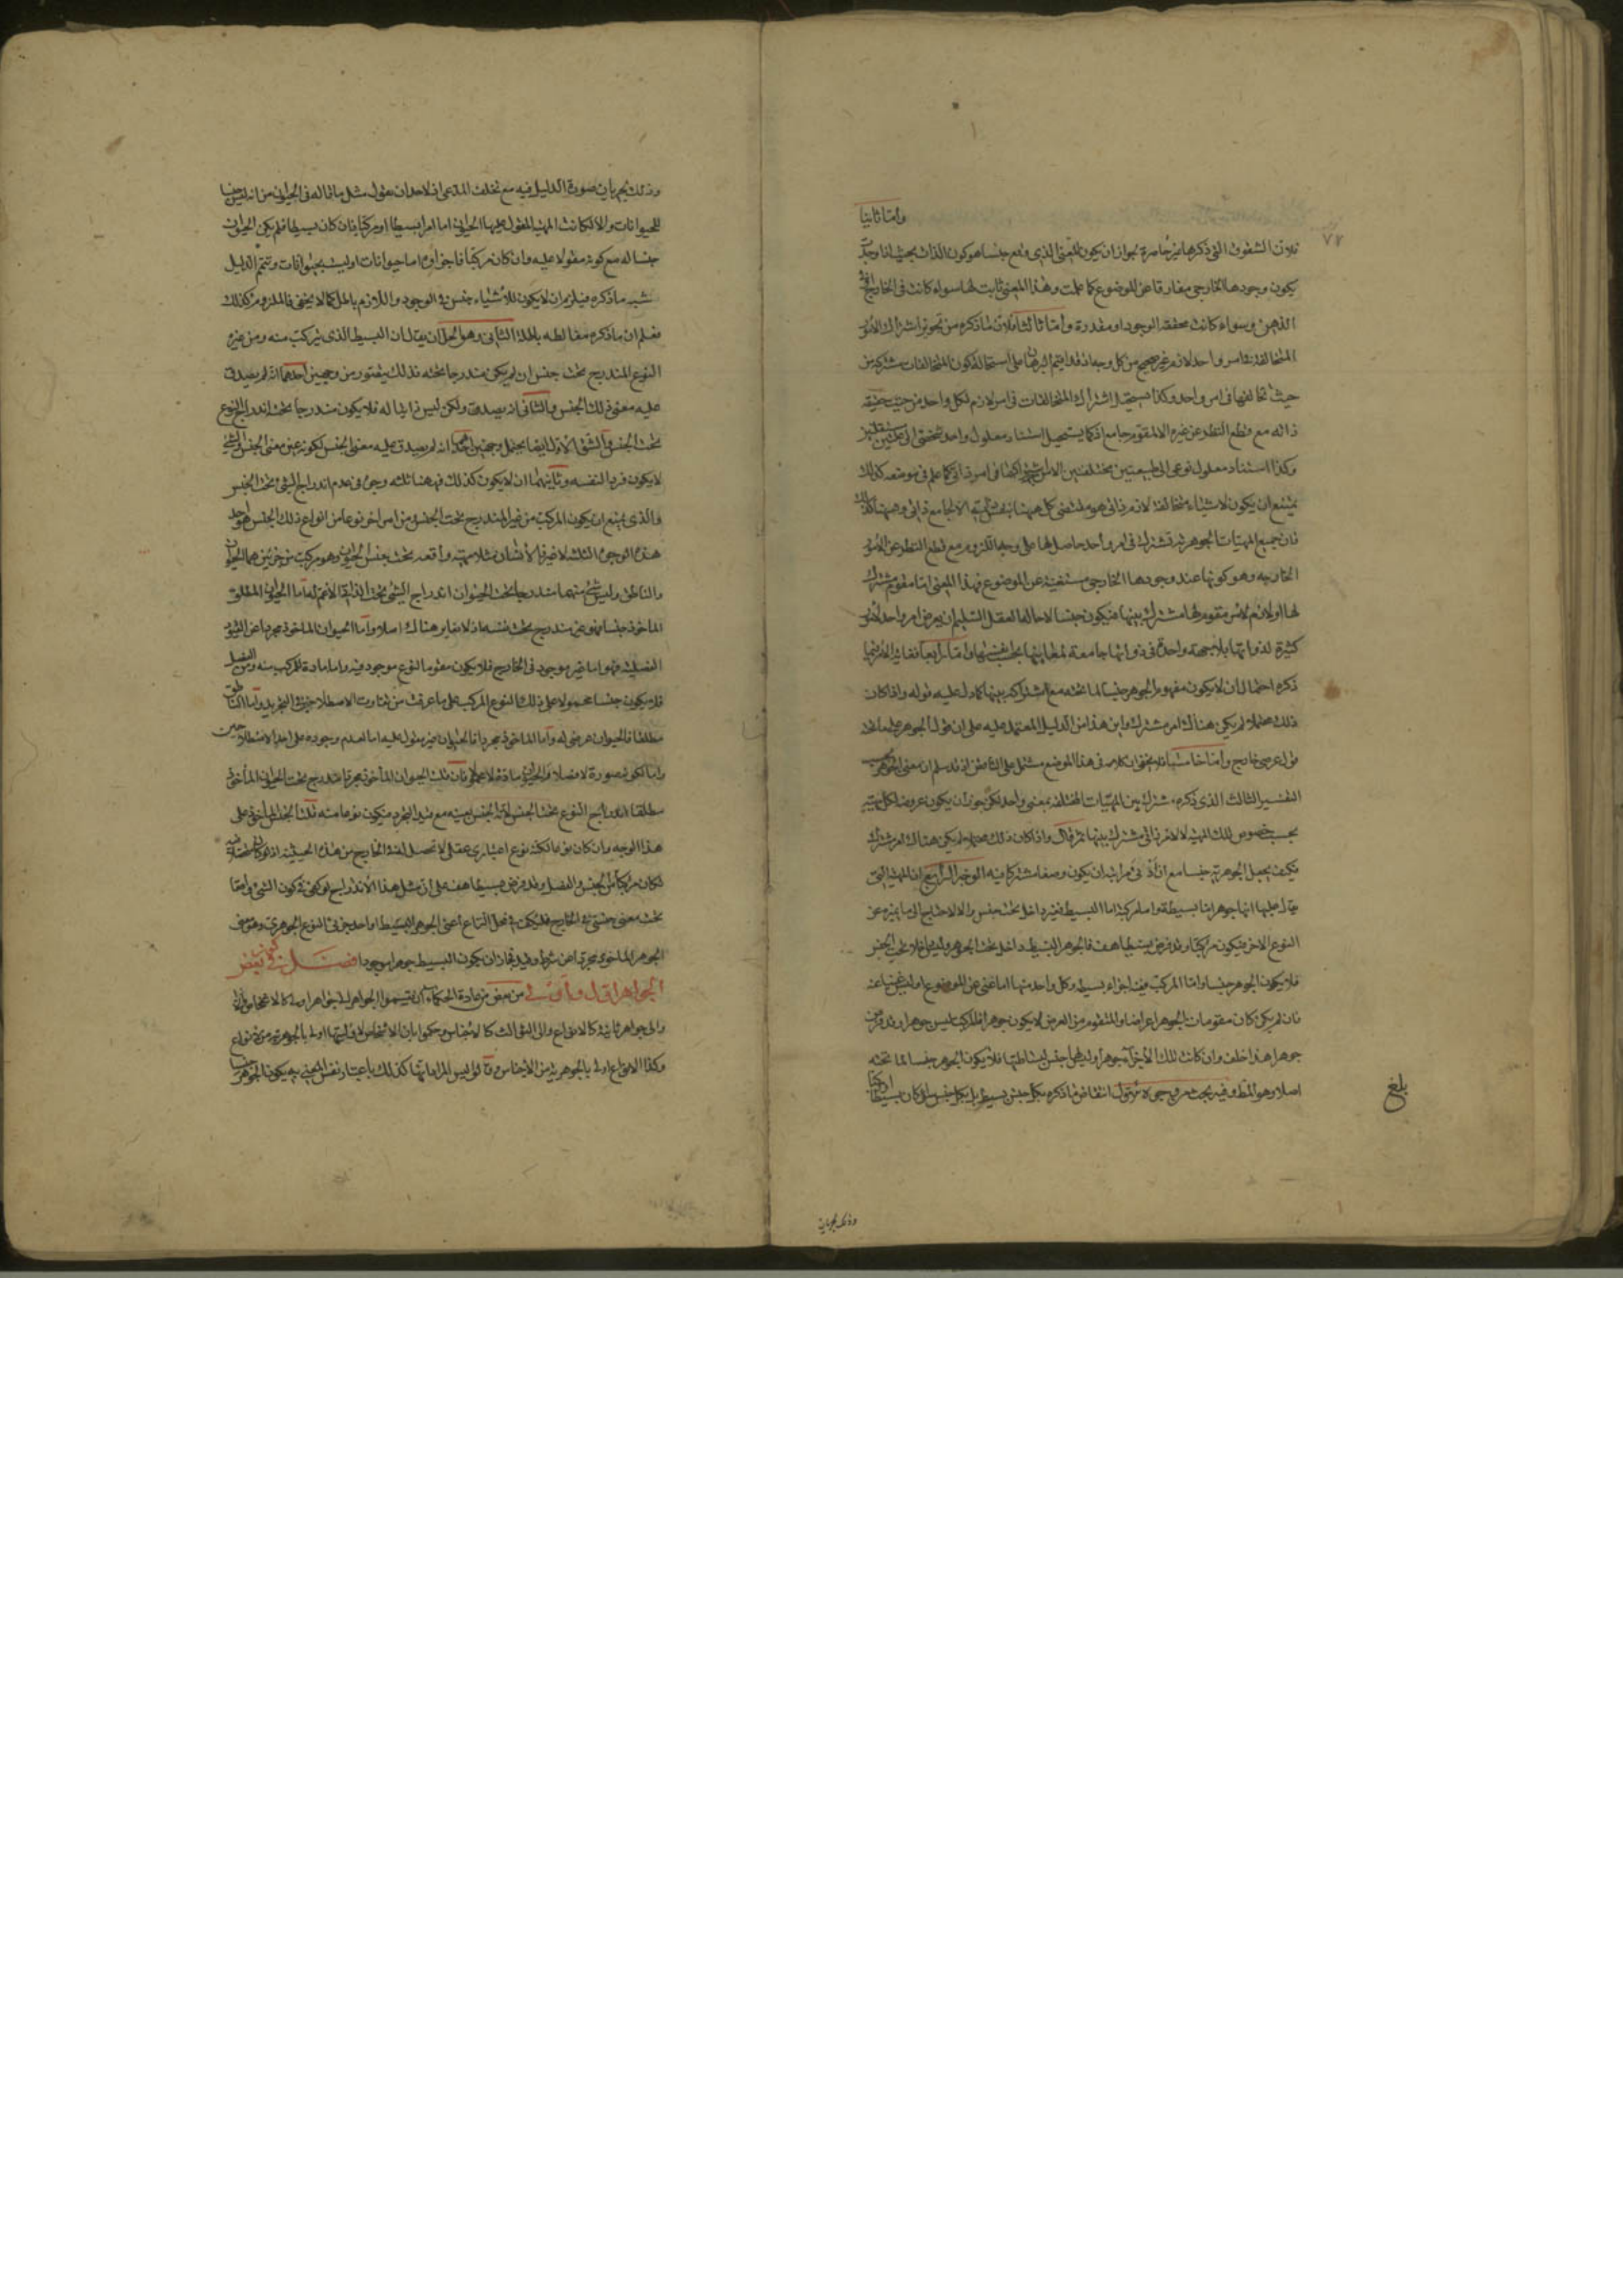 واما ثانيا
٧٨
فلان الشقوق التي ذكرها غير حاصرة بجواز ان يكون المعنى الذي وقع جنسا هو كون الذات بحيث اذا وجدت
يكون وجودها الخارجي مفارقا عن الموضوع كما علمت وهذا المعنى ثابت لها سواء كانت في الخارج او في
الذهن وسواء كانت محققة الوجود او مقدرة واما ثالثا فلان ما ذكره من تجويز اشتراك الامور
المتخالفة في امر واحد لازم غير صحيح من كل وجه اذ قد اقيم البرهان على استحالة كون المتخالفات مشتركة من
حيث تخالفها في امر واحد وكذا يستحيل اشتراك المتخالفات في امر لازم لكل واحد من حيث حقيقة
ذاته مع قطع النظر عن غيره الا لمقوم جامع اذ كما يستحيل استناد معلول واحد شخصي الى علتين مستقلتين
وكذا استناد معلول نوعي الى طبيعتين مختلفتين الا
يمتنع ان يكون لاشياء متخالفة لازم ذاتي هو مقتضى كل منها بنفس ذاته الا لجامع ذاتي وههنا كذلك
فان جميع المهيات الجوهرية تشترك في امر واحد حاصل لها على وجه اللزوم مع قطع النظر عن الامور
الخارجة وهو كونها عند وجودها الخارجي مستغنية عن الموضوع فهذا المعنى اما مقوم مشترك
لها او لازم لامر مقوم لها مشترك بينها فيكون جنسا لا محالة
كثيرة لذواتها بلا جهة واحدة في ذواتها جامعة لمعانيها بحسب نفسها واما رابعا
ذكره احتمال ان لا يكون مفهوم الجوهر جنسا لما تحته مع اشتراكه بينها كما دل عليه قوله واذا كان
ذلك محتملا لم يكن هناك امر مشترك واين هذا من الدليل المعتمد عليه على ان قول الجوهر على ما تحته
قول عرضي خارج واما خامسا فلا يخفى ان كلامه في هذا الموضع مشتمل على التناقض اذ قد سلم ان معنى الجوهر
التفسير الثالث الذي ذكره مشترك بين المهيات المختلفة بمعنى واحد لكن يجوز ان يكون عروضا لكل مهية
بحسب خصوص تلك المهية لا لامر ذاتي مشترك بينها ثم قال واذا كان ذلك محتملا لم يكن هناك امر مشترك
فكيف يجعل الجوهرية جنسا مع ان ادنى مراتبه ان يكون وصفا مشتركا فيه الوجه الرابع ان المهية التي
يقال عليها انها جوهر اما بسيطة واما مركبة اما البسيط فغير داخل تحت جنس والا لاحتاج الى ما يميزه عن
النوع الاخر فيكون مركبا وقد فرض بسيطا هف فالجوهر البسيط داخل تحت الجوهر وليس داخلا تحت الجنس
فلا يكون الجوهر جنسا واما المركب ففيه اجزاء بسيطة وكل واحد منها اما غني عن الموضوع او ليس غنيا عنه
فان لم يكن كان مقومات الجوهر اعراضا والمتقوم من العرض لا يكون جوهرا فالمركب ليس جوهرا وقد فرض
جوهرا هذا خلف وان كانت تلك الاجزاء جوهرا وليس لها جنس لبساطتها فلا يكون الجوهر جنسا لما تحته
اصلا وهو المط وفيه بحث من وجوه الاول انتقاض ما ذكره بكل جنس بسيط بل بكل جنس سواء كان بسيطا او مركبا
بلغ
وذلك بجريان
وذلك بجريان صورة الدليل فيه مع تخلف المدعى اذ لاحد ان يقول مثل ما قاله في الحيوان من انه ليس جنسا
للحيوانات والا لكانت المهية المقول عليها الحيوان اما امرا بسيطا او مركبا فان كان بسيطا فلم يكن الحيوان
جنسا له مع كونه مقولا عليه وان كان مركبا فاجزاؤه اما حيوانات او ليست بحيوانات ويتم الدليل
شبه ما ذكره فيلزم ان لا يكون للاشياء جنس في الوجود واللازم باطل كما لا يخفى فالملزوم كذلك
فعلم ان ما ذكره مغالطة باطلة الثاني وهو الحل ان يقال ان البسيط الذي يتركب منه ومن غيره
النوع المندرج تحت جنس ان لم يكن مندرجا تحته فذلك يتصور من وجهين احدهما انه لم يصدق
عليه معنى ذلك الجنس والثاني انه يصدق ولكن ليس ذاتيا له فلا يكون مندرجا تحته اندراج النوع
تحت الجنس والشق الاول ايضا يحتمل وجهين احدهما انه لم يصدق عليه معنى الجنس لكونه عين معنى الجنس والشيء
لا يكون فردا لنفسه وثانيهما ان لا يكون كذلك فههنا ثلثة وجوه في عدم اندراج الشيء تحت الجنس
والذي يمتنع ان يكون المركب من غير المندرج تحت الجنس ومن امر اخر نوعا من انواع ذلك الجنس هو احد
هذه الوجوه الثلثة لا غير فالانسان مثلا مهيته واقعة تحت جنس الحيوان وهو مركب من جزئين هما الحيوان
والناطق وليس شيء منهما مندرجا تحت الحيوان اندراج الشيء تحت الذاتي الاعم له اما الحيوان المطلق
الماخوذ جنسا فهو غير مندرج تحت نفسه اذ لا تغاير هناك اصلا واما الحيوان الماخوذ مجردا عن القيود
الفصلية فهو اما غير موجود في الخارج فلا يكون مقوما لنوع موجود فيه واما مادة للمركب منه ومن الفصل
فلا يكون جنسا محمولا على ذلك النوع المركب على ما عرفت من تفاوت الاصطلاحين في التجريد واما الناطق
مطلقا فالحيوان عرضي له واما الماخوذ مجردا فالحيوان غير مقول عليه اما لعدم وجوده على احد الاصطلاحين
واما لكونه صورة لا فصلا والحيوان مادة لا محمولا فان قلت الحيوان الماخوذ مجردا مندرج تحت الحيوان الماخوذ
مطلقا اندراج النوع تحت الجنس لانه الجنس بعينه مع قيد التجرد فيكون نوعا منه قلت الجنس الماخوذ على
هذا الوجه وان كان نوعا لكنه نوع اعتباري عقلي لا تحصل له في الخارج من هذه الحيثية اذ لو كان متحصلا فيه
لكان مركبا من الجنس والفصل وقد فرض بسيطا هف على ان مثل هذا الاندراج لو كفى في كون الشيء واقعا
تحت معنى جنسي في الخارج فليكف في محل النزاع اعني الجوهر البسيط او احد جزئي النوع الجوهري وهو معنى
الجوهر الماخوذ مجردا عن شرط وقيد فجاز ان يكون البسيط جوهرا موجودا فصل في كون بعض
الجواهر اول واولى من بعض من عادة الحكماء ان يقسموا الجواهر الى جواهر اولى كالاشخاص
والى جواهر ثانية كالانواع والى الثوالث كالاجناس وحكموا بان الاشخاص لاوليتها اولى بالجوهرية من الانواع
وكذا الانواع اولى بالجوهرية من الاجناس وقالوا ليس المراد انها كذلك باعتبار نفس المعنى به يكون الجوهر جنسا